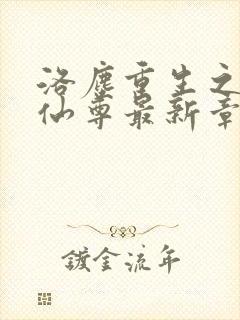 洛尘重生之
仙尊最新章
镀金流年